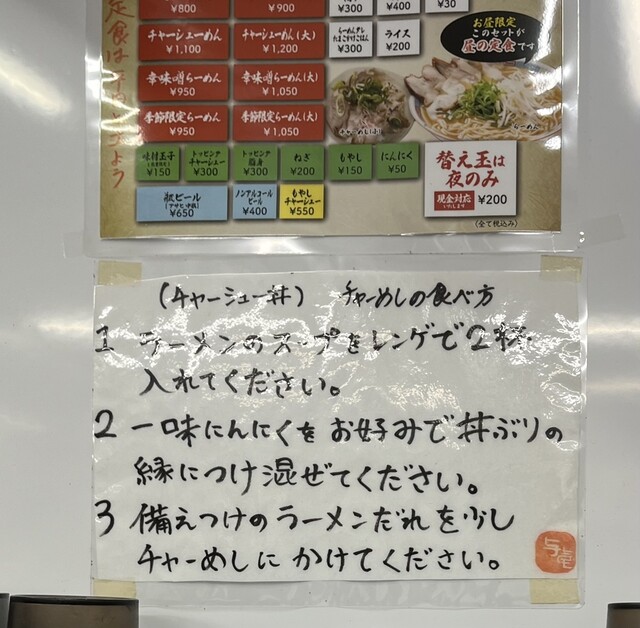 ¥800
¥900
¥300
¥400
¥30
チャーシューめん
¥1,100
チャーシューめん(大)
¥1,200
¥300
ライス
¥200
お昼限定
このセットが
昼の定食です
辛味噌らーめん
¥950
辛味噌らーめん(大)
¥1,050
季節限定らーめん
¥950
季節限定らーめん(大)
¥1,050
チャーめし
らーめん
味付玉子
¥150
トッピング
チャーシュー
¥300
トッピング
脂身
¥300
ねぎ
¥200
もやし
¥150
にんにく
¥50
替え玉は
夜のみ
現金対応
いたします
¥200
瓶ビール
¥650
ノンアルコール
ビール
¥400
もやし
チャーシュー
¥550
(全て税込み)
(チャーシュー丼) チャーめしの食べ方
1 ラーメンのスープをレンゲで2杯
入れてください。
2 一味にんにくを お好みで丼ぶりの
縁につけ混ぜてください。
3 備えつけのラーメンだれを少し
チャーめしに かけてください。